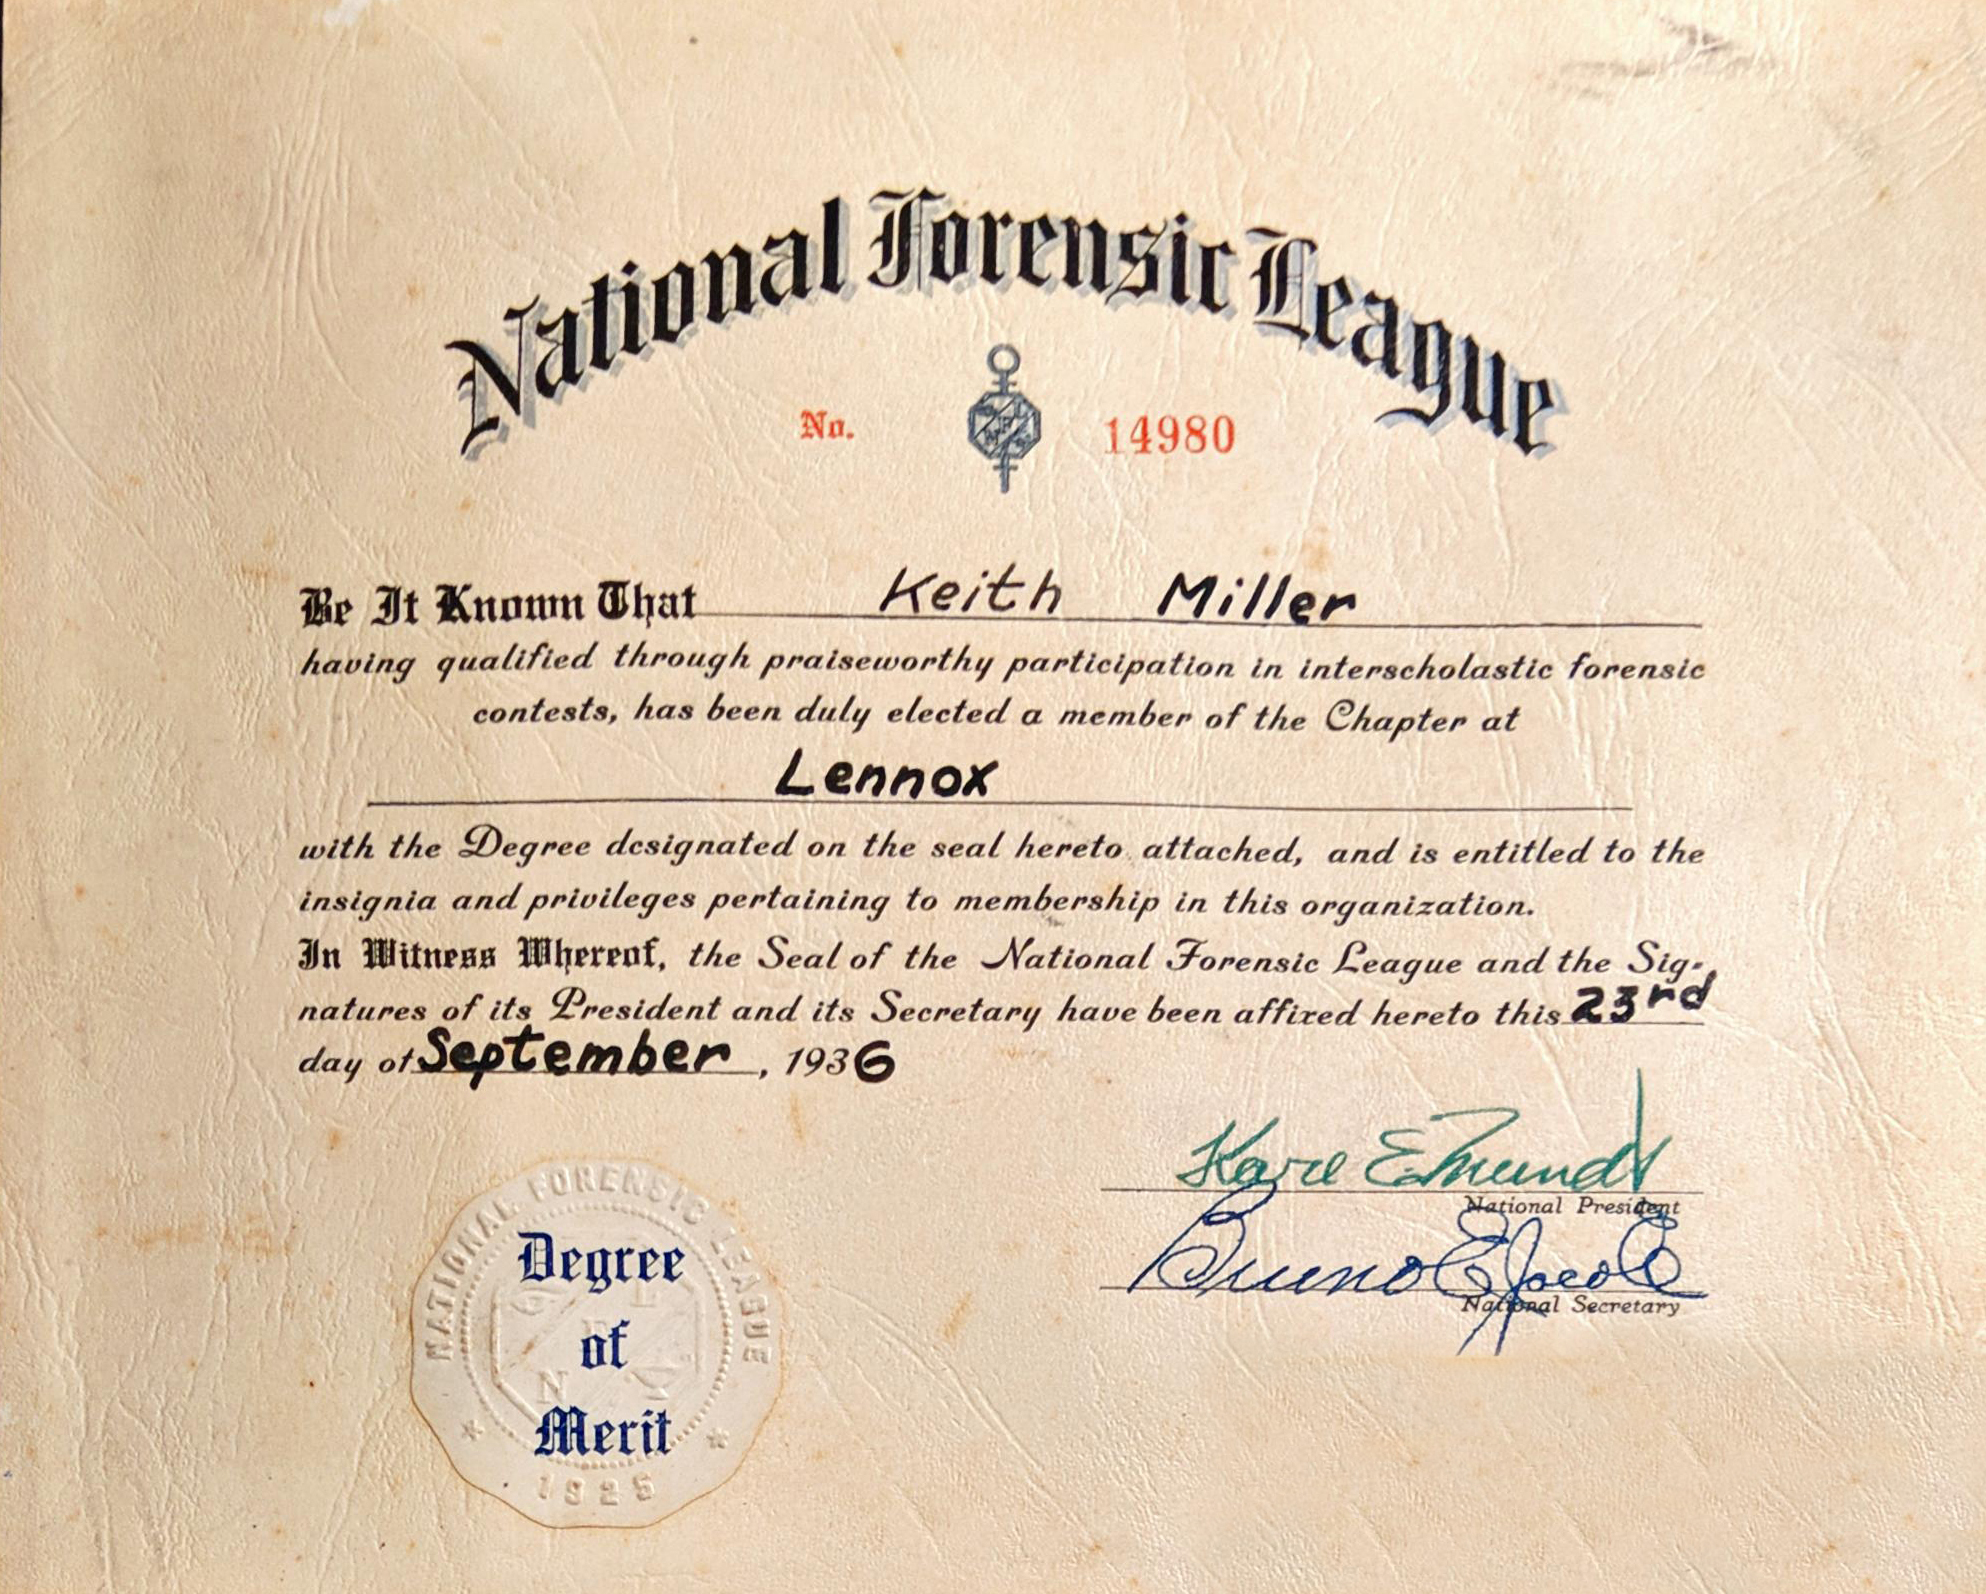 National Forensic League
No. 14980
Be It Known That Keith Miller
having qualified through praiseworthy participation in interscholastic forensic
contests, has been duly elected a member of the Chapter at
Lennox
with the Degree designated on the seal hereto attached, and is entitled to the
insignia and privileges pertaining to membership in this organization.
In Witness Whereof, the Seal of the National Forensic League and the Sig-
natures of its President and its Secretary have been affixed hereto this 23rd
day of September, 1936
Karl E. Mundt
National President
Bruno E Jacob
National Secretary
NATIONAL FORENSIC LEAGUE
Degree
of
Merit
1925